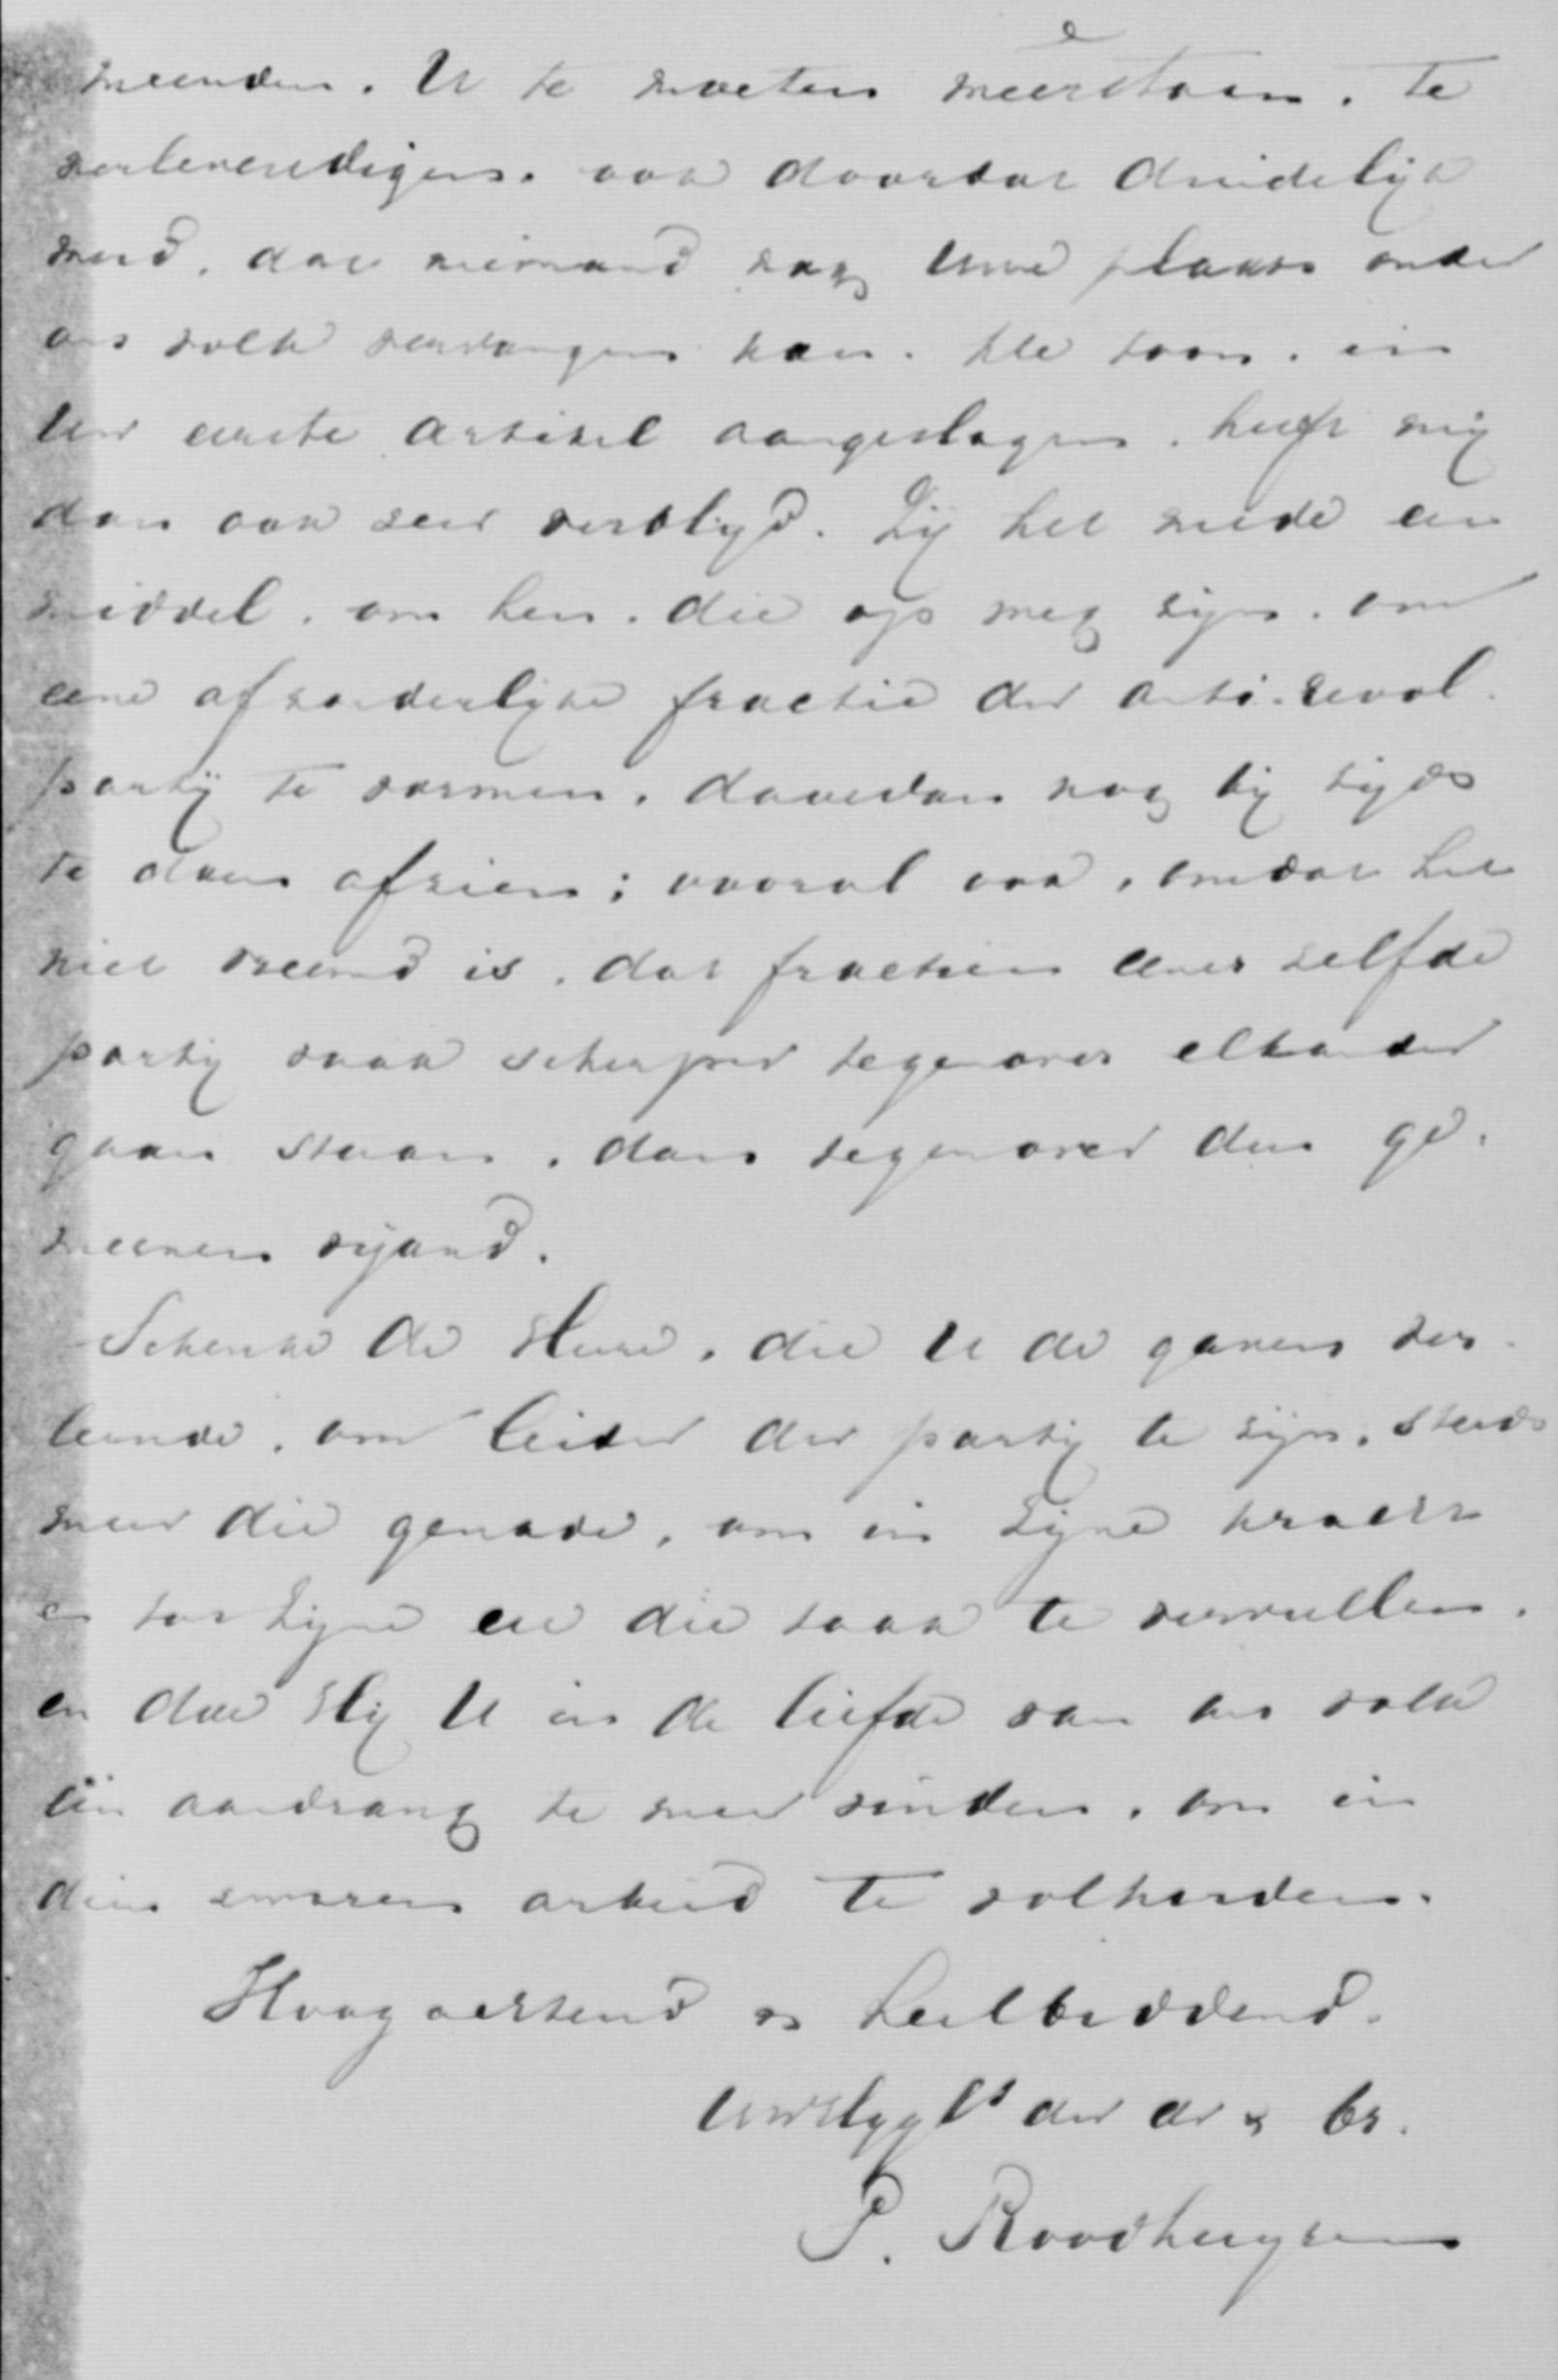 meenden, U te moeten weêrstaan, te
verlevendigen, ook daardoor duidelijk
werd, dat niemand nog Uwe plaats onder
ons volk vervangen kan. De toon, in
Uw eerste artikel aangeslagen, heeft mij
dan ook zeer verblijd. Zij het mede een
middel, om hen, die op weg zijn, om
eene afzonderlijke fractie der anti-revol.
partij te vormen, daarvan nog bij tijds
te doen afzien; vooral ook, omdat het
niet vreemd is, dat fractien eener zelfde
partij vaak scherper tegenover elkander
gaan staan, dan tegenover den ge-
meenen vijand.
Schenke de Heere, die U de gaven ver-
leende, om leider der partij te zijn, steeds
meer die genade, om in Zijne kracht
en tot Zijne eer die taak te vervullen,
en doe Hij U in de liefde van ons volk
één aandrang te meer vinden, om in
dien zwaren arbeid te volharden.
Hoogachtend en heilbiddend,
UwHgGb der dr & br.
P. Roodhuyzen